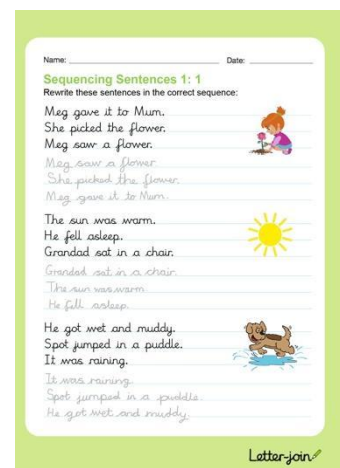 Name: Date:
Sequencing Sentences 1: 1
Rewrite these sentences in the correct sequence:
Meg gave it to Mum.
She picked the flower.
Meg saw a flower.
Meg saw a flower
She picked the flower.
Meg gave it to Mum.
The sun was warm.
He fell asleep.
Grandad sat in a chair.
Grandad sat in a chair.
The sun was warm
He fell asleep.
He got wet and muddy.
Spot jumped in a puddle.
It was raining.
It was raining.
Spot jumped in a puddle.
He got wet and muddy.
Letter-join